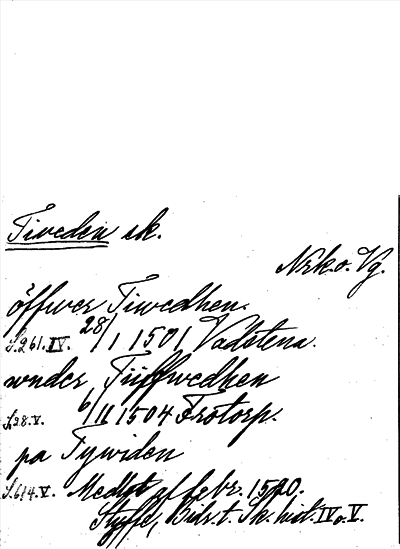 Tiweden sk.
Nrk. o. Vg.
öffwer Tiwedhen.
S.261.IV. 28/1 1501 Vadstena.
wnder Tiiffwedhen
S.28.V. 6/11 1504 Frötorp.
pa Tywiden
S.614.V. Medlet af febr. 1520.
Styffe, Bidr. t. Sk. hist. IV o. V.